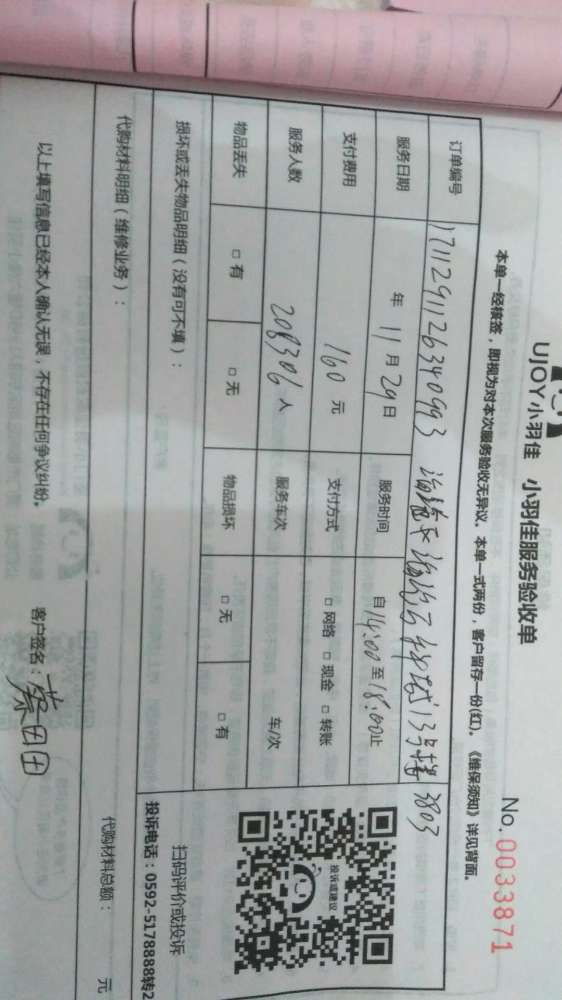 UJOY小羽佳 小羽佳服务验收单
No. 0033871
本单一经核签，即视为对本次服务验收无异议。本单一式两份，客户留存一份(红)。《维保须知》详见背面。
订单编号 1711291126340993 13号楼 3803
服务日期 年 11 月 29 日 服务时间 自 14:00 至 18:00 止
支付费用 160 元 支付方式 □ 网络 □ 现金 □ 转账
服务人数 208306 人 服务车次 车/次
物品丢失 □ 有 □ 无 物品损坏 □ 无 □ 有
投诉或建议
扫码评价或投诉
投诉电话：0592-5178888转2
损坏或丢失物品明细（没有可不填）：
代购材料明细（维修业务）：
代购材料总额： 元
以上填写信息已经本人确认无误，不存在任何争议纠纷。
客户签名：蔡田田